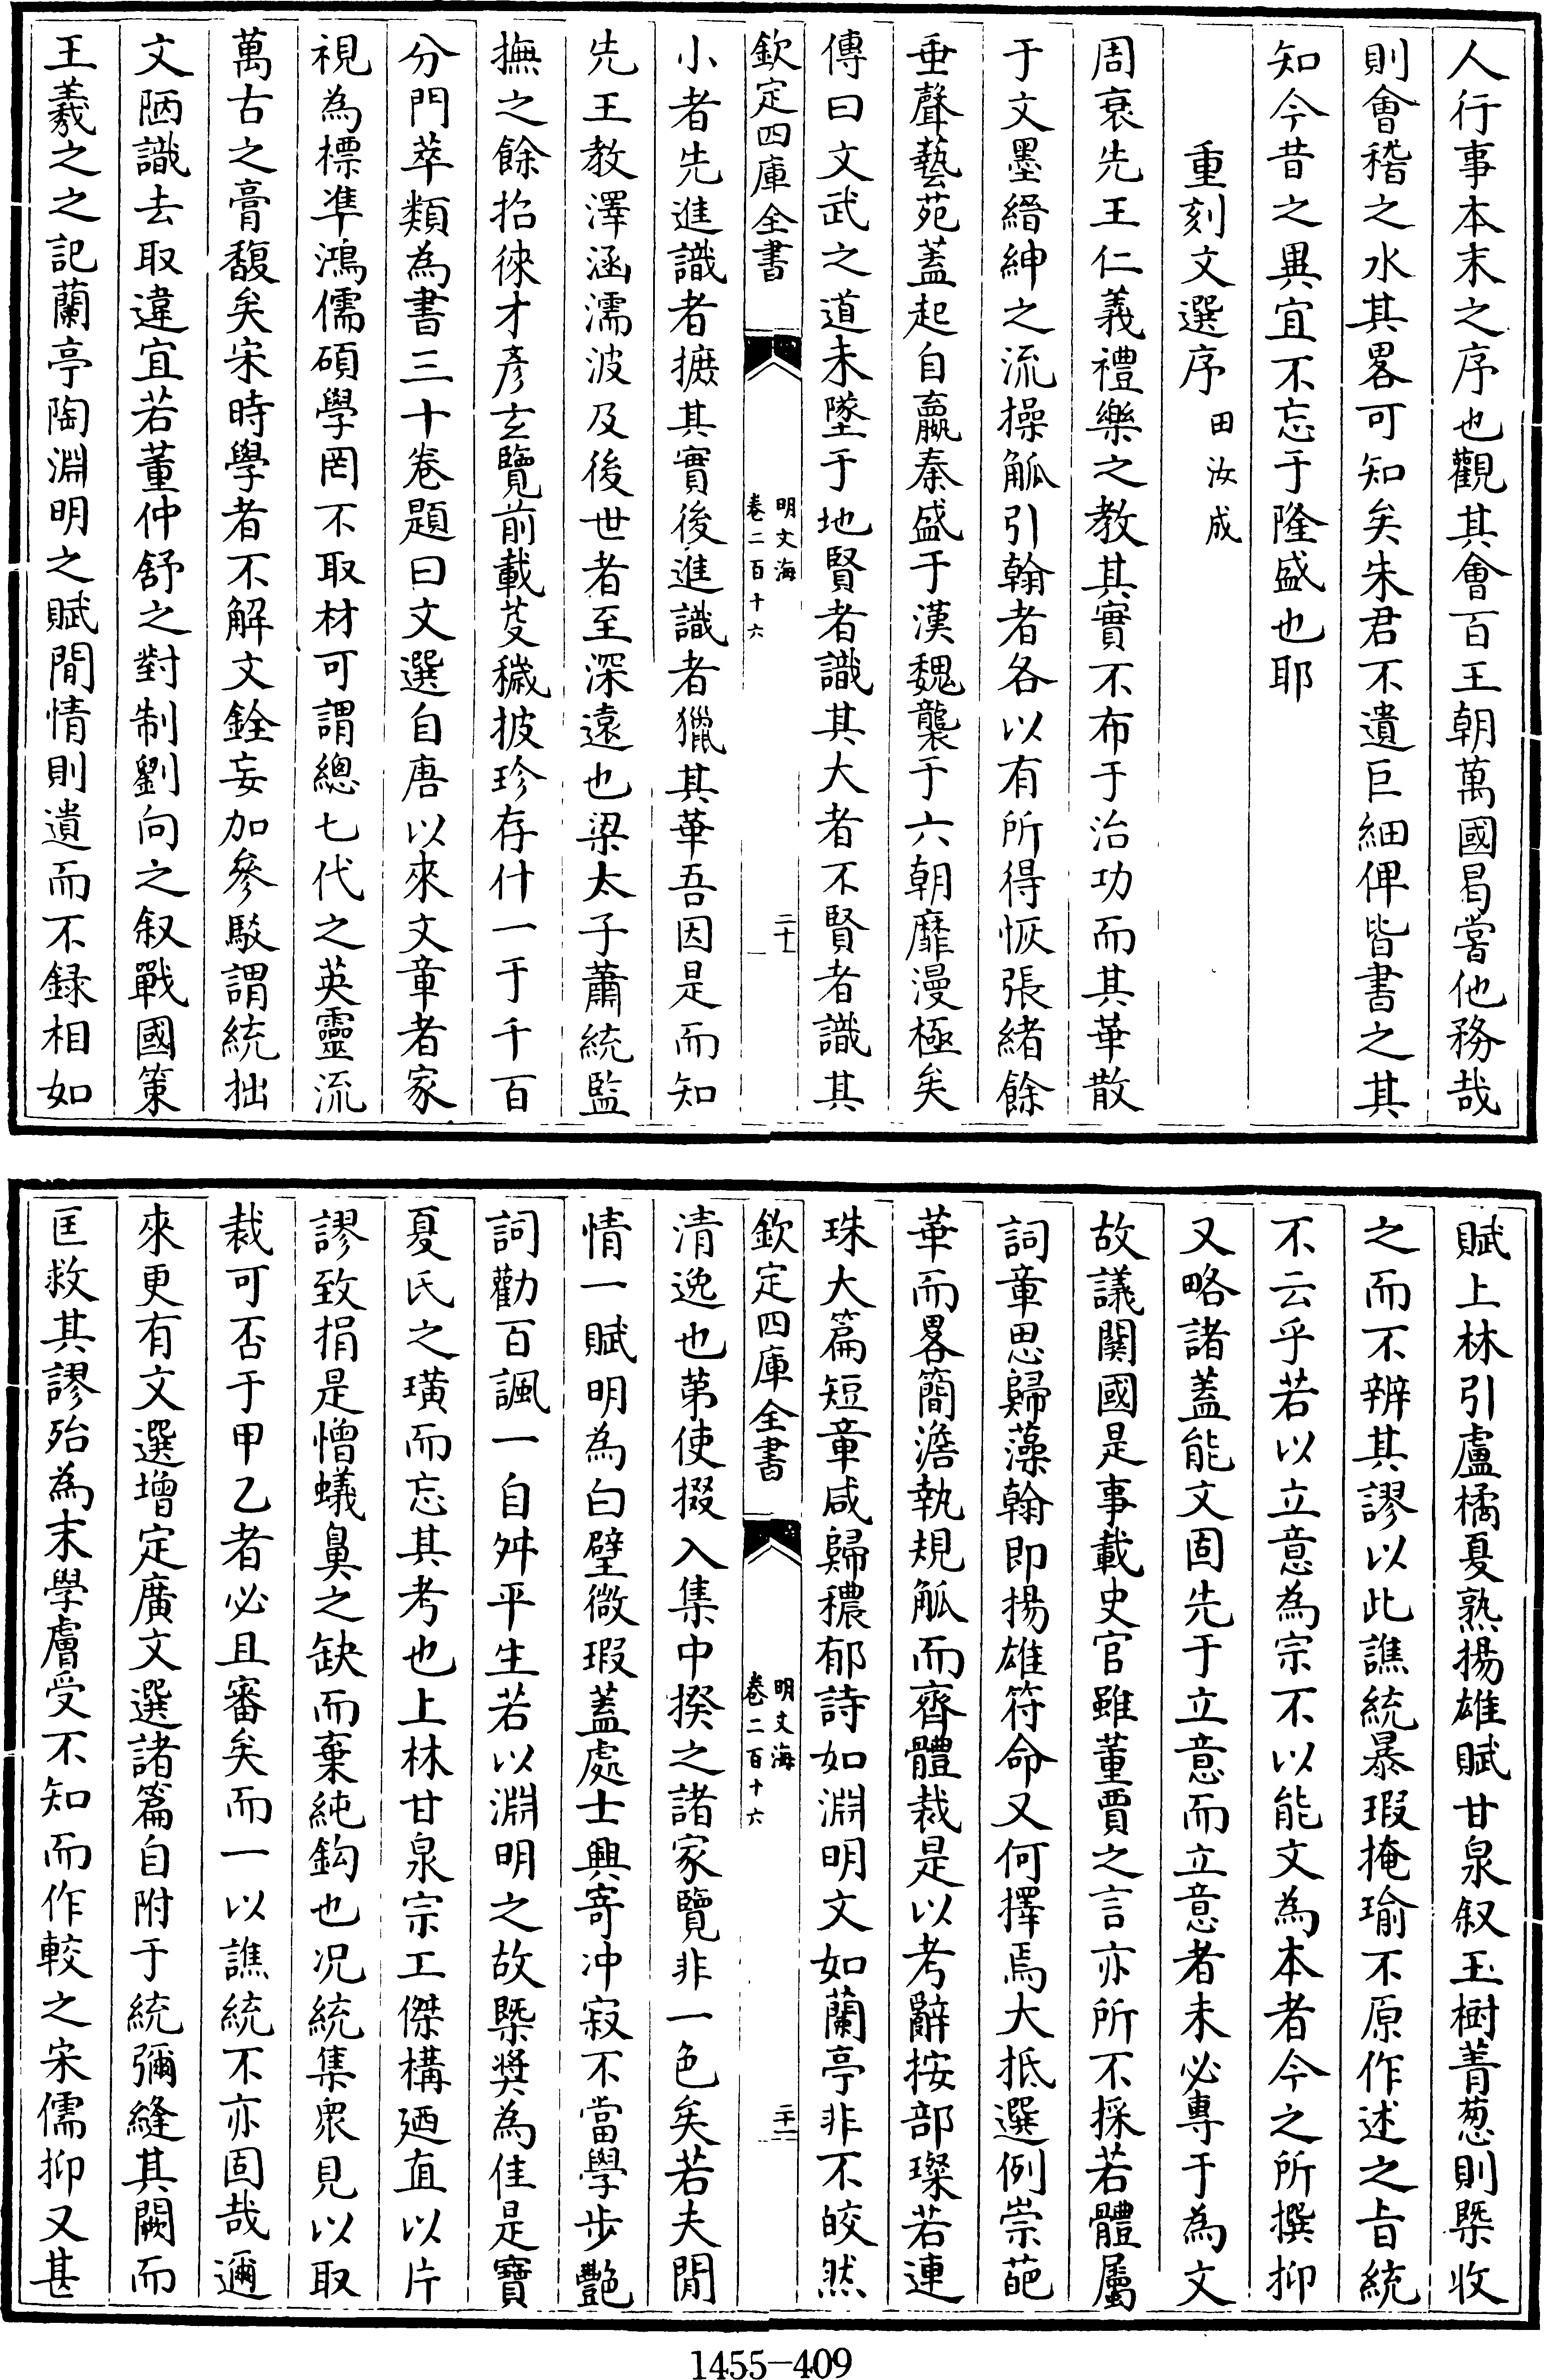 人行事本末之序也觀其會百王朝萬國曷嘗他務哉
則會稽之水其畧可知矣朱君不遺巨細俾皆書之其
知今昔之異宜不忘于隆盛也耶
重刻文選序 田汝成
周衰先王仁義禮樂之教其實不布于治功而其華散
于文墨縉紳之流操觚引翰者各以有所得恢張緒餘
垂聲藝苑蓋起自嬴秦盛于漢魏襲于六朝靡漫極矣
傳曰文武之道未墜于地賢者識其大者不賢者識其
欽定四庫全書 明文海 卷二百十六 二十一
小者先進識者摭其實後進識者獵其華吾因是而知
先王教澤涵濡波及後世者至深遠也梁太子蕭統監
撫之餘招徠才彥玄覽前載芟穢披珍存什一于千百
分門萃類為書三十卷題曰文選自唐以來文章者家
視為標準鴻儒碩學罔不取材可謂總七代之英靈流
萬古之膏馥矣宋時學者不解文銓妄加參駁謂統拙
文陋識去取違宜若董仲舒之對制劉向之叙戰國策
王羲之之記蘭亭陶淵明之賦閒情則遺而不録相如
賦上林引盧橘夏熟揚雄賦甘泉叙玉樹菁葱則槩收
之而不辨其謬以此譙統暴瑕掩瑜不原作述之旨統
不云乎若以立意為宗不以能文為本者今之所撰抑
又略諸蓋能文固先于立意而立意者未必專于為文
故議関國是事載史官雖董賈之言亦所不採若體屬
詞章思歸藻翰即揚雄符命又何擇焉大抵選例崇葩
華而畧簡澹執規觚而齊體裁是以考辭按部璨若連
珠大篇短章咸歸穠郁詩如淵明文如蘭亭非不皎然
欽定四庫全書 明文海 卷二百十六 二十二
清逸也第使掇入集中揆之諸家覽非一色矣若夫閒
情一賦明為白璧微瑕蓋處士興寄冲寂不當學步艷
詞勸百諷一自舛平生若以淵明之故槩奬為佳是寶
夏氏之璜而忘其考也上林甘泉宗工傑構廼直以片
謬致捐是憎蟻鼻之缺而棄純鈎也况統集衆見以取
裁可否于甲乙者必且審矣而一以譙統不亦固哉邇
來更有文選增定廣文選諸篇自附于統彌縫其闕而
匡救其謬殆為末學膚受不知而作較之宋儒抑又甚
1455-409